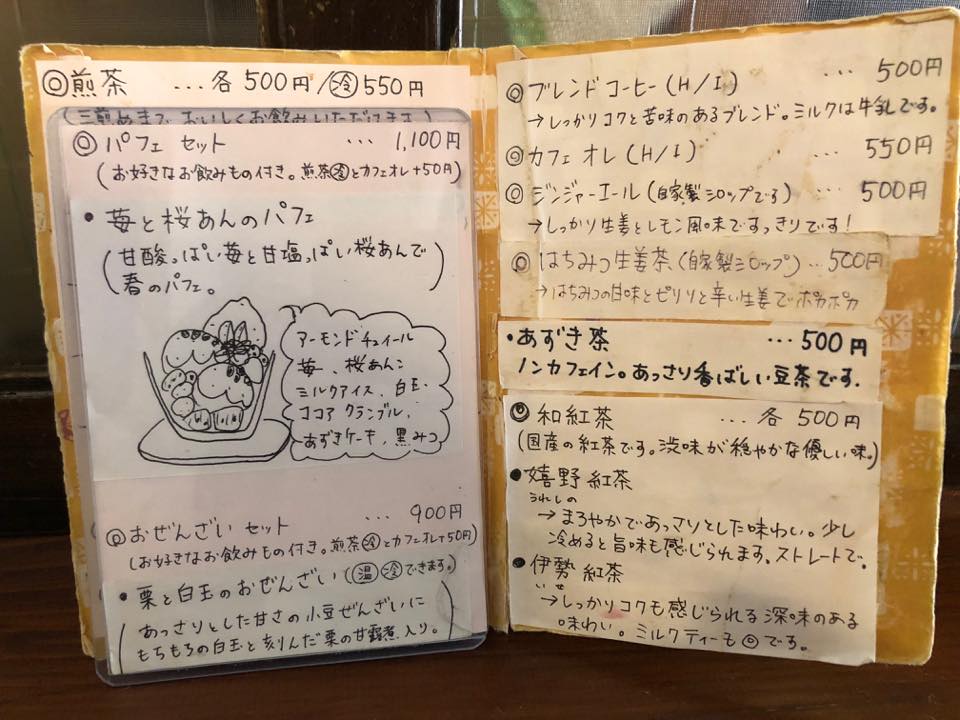 ◎煎茶 ... 各500円/㊗550円
(三煎めまで、おいしくお飲みいただけます)
◎パフェ セット ... 1,100円
(お好きなお飲みもの付き。煎茶冷とカフェオレ+50円)
・苺と桜あんのパフェ
(甘酸っぱい苺と甘塩っぱい桜あんで
春のパフェ。)
アーモンドチュイール
苺、桜あんこ
ミルクアイス、白玉、
ココアクランブル、
あずきケーキ、黒みつ
◎おぜんざいセット ... 900円
(お好きなお飲みもの付き。煎茶冷とカフェオレ+50円)
・栗と白玉のおぜんざい(温冷できます。)
(あっさりとした甘さの小豆ぜんざいに
もちもちの白玉と刻んだ栗の甘露煮入り。)
◎ブレンドコーヒー(H/I) ... 500円
→しっかりコクと苦味のあるブレンド。ミルクは牛乳です。
◎カフェオレ(H/I) ... 550円
◎ジンジャーエール(自家製シロップです) ... 500円
→しっかり生姜とレモン風味ですっきりです!
◎はちみつ生姜茶(自家製シロップ) ... 500円
→はちみつの甘味とピリリと辛い生姜でポカポカ
・あずき茶 ... 500円
ノンカフェイン。あっさり香ばしい豆茶です.
◎和紅茶 ... 各500円
(国産の紅茶です。渋味が穏やかな優しい味。)
・嬉野紅茶
うれしの
→まろやかであっさりとした味わい。少し
冷めると旨味も感じられます。ストレートで。
・伊勢紅茶
いせ
→しっかりコクも感じられる深味のある
味わい。ミルクティーも◎です。